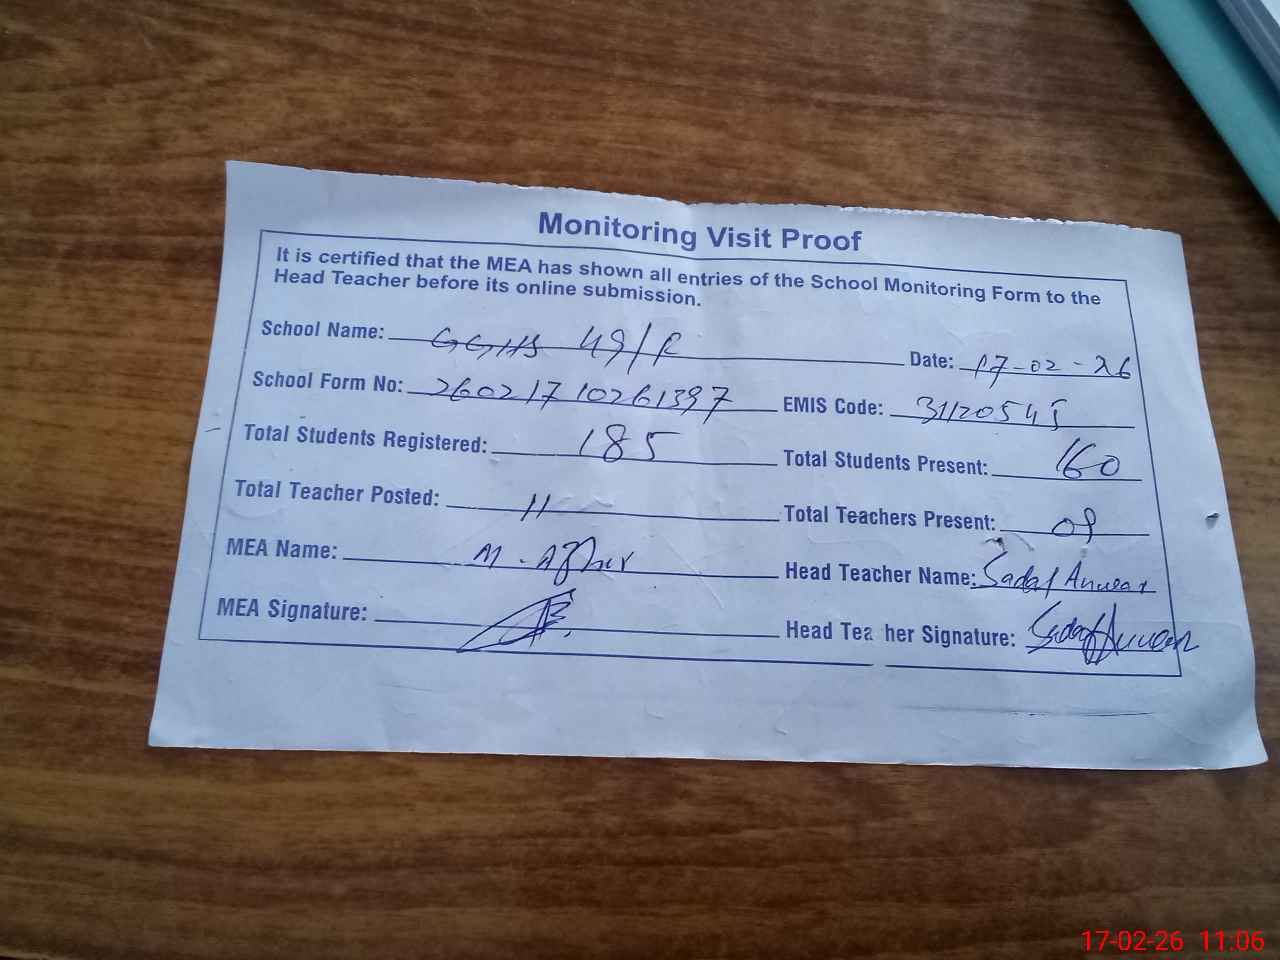 Monitoring Visit Proof
It is certified that the MEA has shown all entries of the School Monitoring Form to the
Head Teacher before its online submission.
School Name: GGHS 49/R Date: 17-02-26
School Form No: 26021710261397 EMIS Code: 31120545
Total Students Registered: 185 Total Students Present: 160
Total Teacher Posted: 11 Total Teachers Present: 09
MEA Name: M. Azhar Head Teacher Name: Sadaf Anwar
MEA Signature: Head Tea her Signature: Sadaf Anwar
17-02-26 11:06